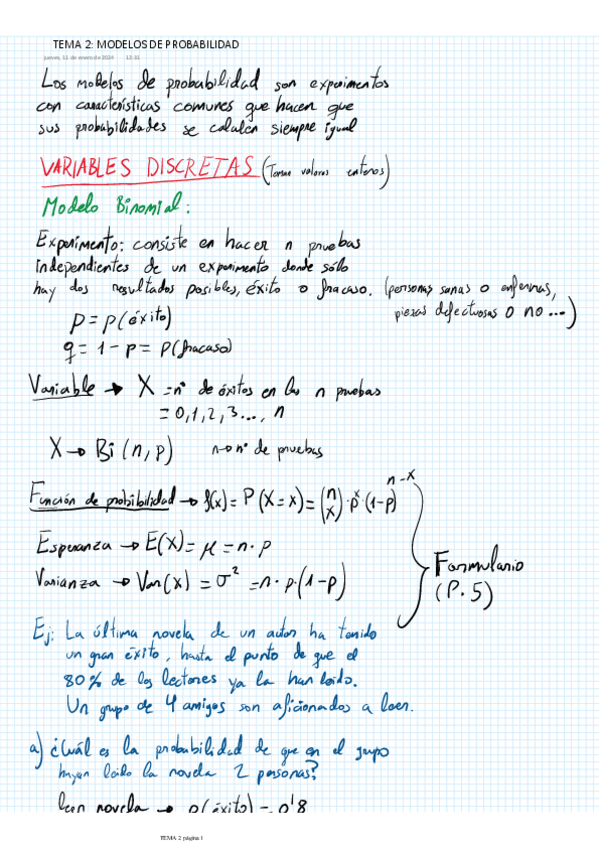 TEMA 2: MODELOS DE PROBABILIDAD
jueves, 11 de enero de 2024 12:31
Los modelos de probabilidad son experimentos
con características comunes que hacen que
sus probabilidades se calculen siempre igual
VARIABLES DISCRETAS (Toman valores enteros)
Modelo Binomial:
Experimento: consiste en hacer n pruebas
independientes de un experimento donde sólo
hay dos resultados posibles, éxito o fracaso. (personas sanas o enfermas,
piezas defectuosas o no ...)
p = p(éxito)
q = 1 - p = P(fracaso)
Variable → X = nº de éxitos en las n pruebas
= 0, 1, 2, 3..., n
X → Bi (n, p) n → nº de pruebas
Función de probabilidad → f(x) = P (X = x) = (n x) · p^x · (1-p)^n-x
Esperanza → E(X) = μ = n · p
Varianza → Var(X) = σ² = n · p · (1-p)
Formulario
(P. 5)
Ej: La última novela de un autor ha tenido
un gran éxito, hasta el punto de que el
80% de los lectores ya la han leido.
Un grupo de 4 amigos son aficionados a leer.
a) ¿Cuál es la probabilidad de que en el grupo
hayan leído la novela 2 personas?
leer novela → p(éxito) = 0'8
TEMA 2 página 1